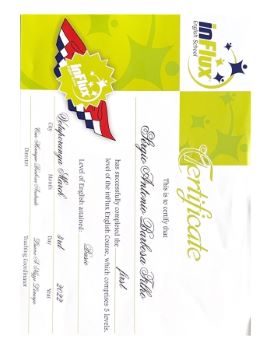 inFlux
English School
Certificate
This is to certify that
Sérgio Antonio Barbosa Filho
has successfully completed the first
level of the inFlux English Course, which comprises 5 levels.
Level of English attained: Basic
inFlux
Votuporanga March 3rd 2022
City Month Day Year
Director Teaching Coordinator